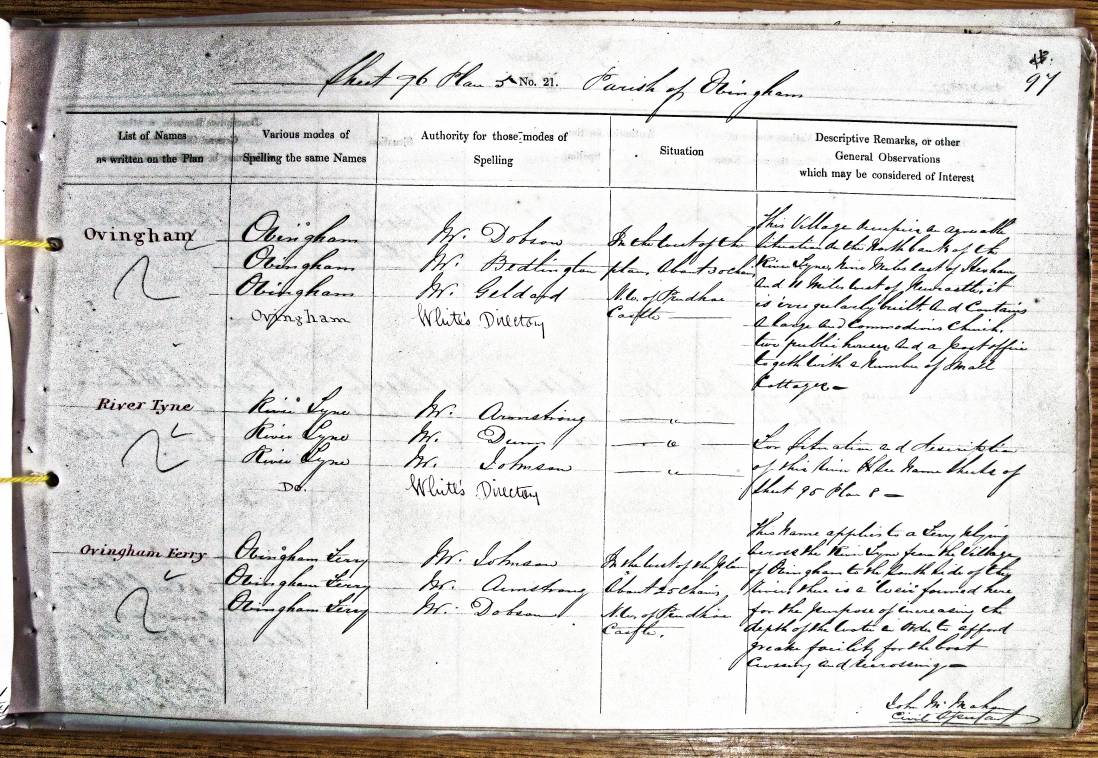 97
Sheet 96 Plan 5 No. 21. Parish of Ovingham
List of Names
as written on the Plan
Various modes of
Spelling the same Names
Authority for those modes of
Spelling
Situation
Descriptive Remarks, or other
General Observations
which may be considered of Interest
Ovingham
Ovingham
Ovingham
Ovingham
Ovingham
Mr. Dobson
Mr. Bedlington
Mr. Geldard
White's Directory
In the West of the
plan, About 30 chains
N.W. of Prudhoe
Castle
This Village occupies an agreeable
Situation on the North bank of the
River Tyne, Nine Miles East of Hexham
And 11 Miles West of Newcastle, it
is irregularly built. And Contains
A large And Commodious Church,
two public houses And a post office
togeth with a Number of Small
Cottages
River Tyne
River Tyne
River Tyne
River Tyne
Do.
Mr. Armstrong
Mr. Dunn
Mr. Johnson
White's Directory
— " —
— " —
— " —
For Situation and description
of this River See Name Sheets of
Sheet 95 Plan 8
Ovingham Ferry
Ovingham Ferry
Ovingham Ferry
Ovingham Ferry
Mr. Johnson
Mr. Armstrong
Mr. Dobson
In the West of the Plan
About 25 chains,
N.W. of Prudhoe
Castle.
This Name applies to a Ferry plying
across the River Tyne from the Village
of Ovingham to the South side of the
River, there is a "Weir" formed here
for the purpose of increasing the
depth of the water in order to afford
greater facility for the boat
Crossing and recrossing
John McMahon
Civil Assistant